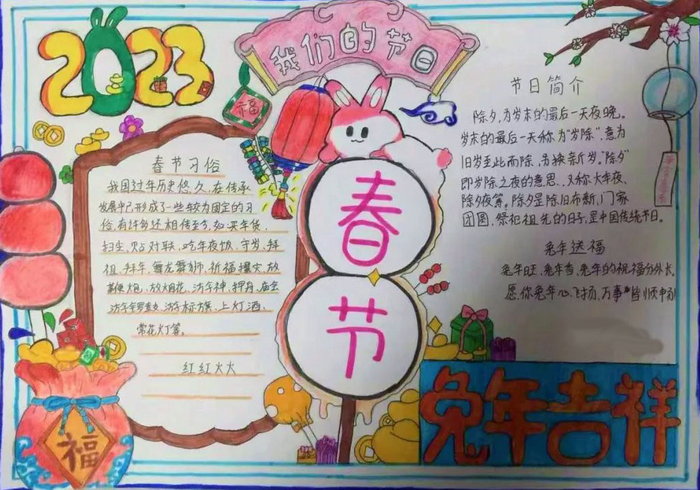 2023
我们的节日
福
春节习俗
我国过年历史悠久,在传承
发展中已形成了一些较为固定的习
俗,有许多还相传至今,如买年货、
扫尘、贴对联、吃年夜饭、守岁、拜
祖、拜年、舞龙舞狮、祈福
放烟花、
上灯酒、
赏花灯等。
红红火火
春
节
节日简介
除夕,为岁末的最后一天夜晚。
岁末的最后一天称为"岁除",意为
旧岁至此而除,另换新岁。"除夕"
即岁除之夜的意思,又称大年夜、
除夕夜等。除夕是除旧布新、门家
团圆、祭祀祖先的日子,是中国传统节日。
兔年送福
兔年旺,兔年吉,兔年的祝福分外长。
愿你兔年心飞扬,万事皆顺
兔年吉祥
福